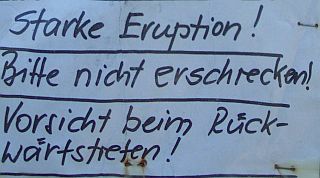 Starke Eruption!
Bitte nicht erschrecken!
Vorsicht beim Rück-
wärtstreten!